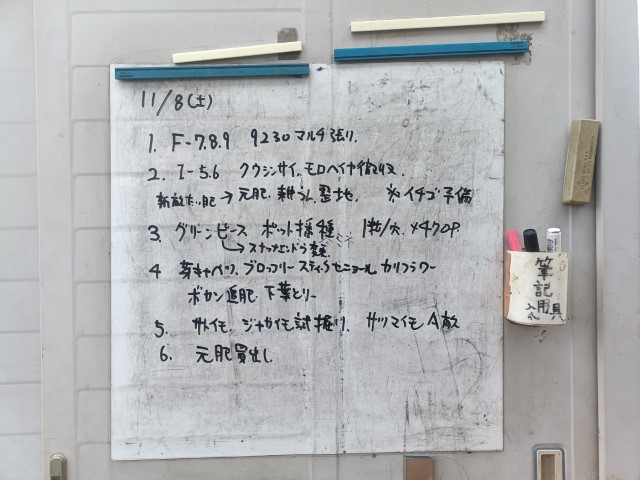 11/8(土)
1. F-7.8.9 9230マルチ張り.
2. I-5.6 クウシンサイ.モロヘイヤ
→ 元肥. 耕うん. 整地. ※イチゴ予備
3. グリーンピース ポット播種 1粒/穴. ×470P.
→スナップエンドウ
4 芽キャベツ. ブロッコリー スティックセニョール カリフラワー
ボカシ追肥. 下葉とり
5. サトイモ. ジャガイモ試掘り. サツマイモ A敵
6. 元肥買出し
筆記用具
入れ